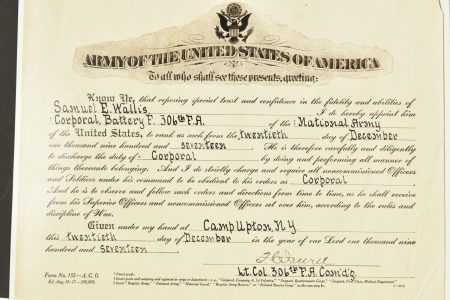 ARMY OF THE UNITED STATES OF AMERICA
To all who shall see these presents, greeting:
Know Ye, that reposing special trust and confidence in the fidelity and abilities of
Samuel E. Wallis, I do hereby appoint him
Corporal, Battery F. 306th F.A. of the National Army
of the United States, to rank as such from the twentieth day of December
one thousand nine hundred and seventeen. He is therefore carefully and diligently
to discharge the duty of Corporal by doing and performing all manner of
things thereunto belonging. And I do strictly charge and require all noncommissioned Officers
and Soldiers under his command to be obedient to his orders as Corporal
And he is to observe and follow such orders and directions from time to time, as he shall receive
from his Superior Officers and noncommissioned Officers set over him, according to the rules and
discipline of War.
Given under my hand at Camp Upton, N.Y.
this twentieth day of December in the year of our Lord one thousand nine
hundred and seventeen
Lt. Col. 306th F.A. Com'd'g.
Form No. 152—A. G. O.
Ed. Aug. 10-17—100,000.
¹ Insert grade.